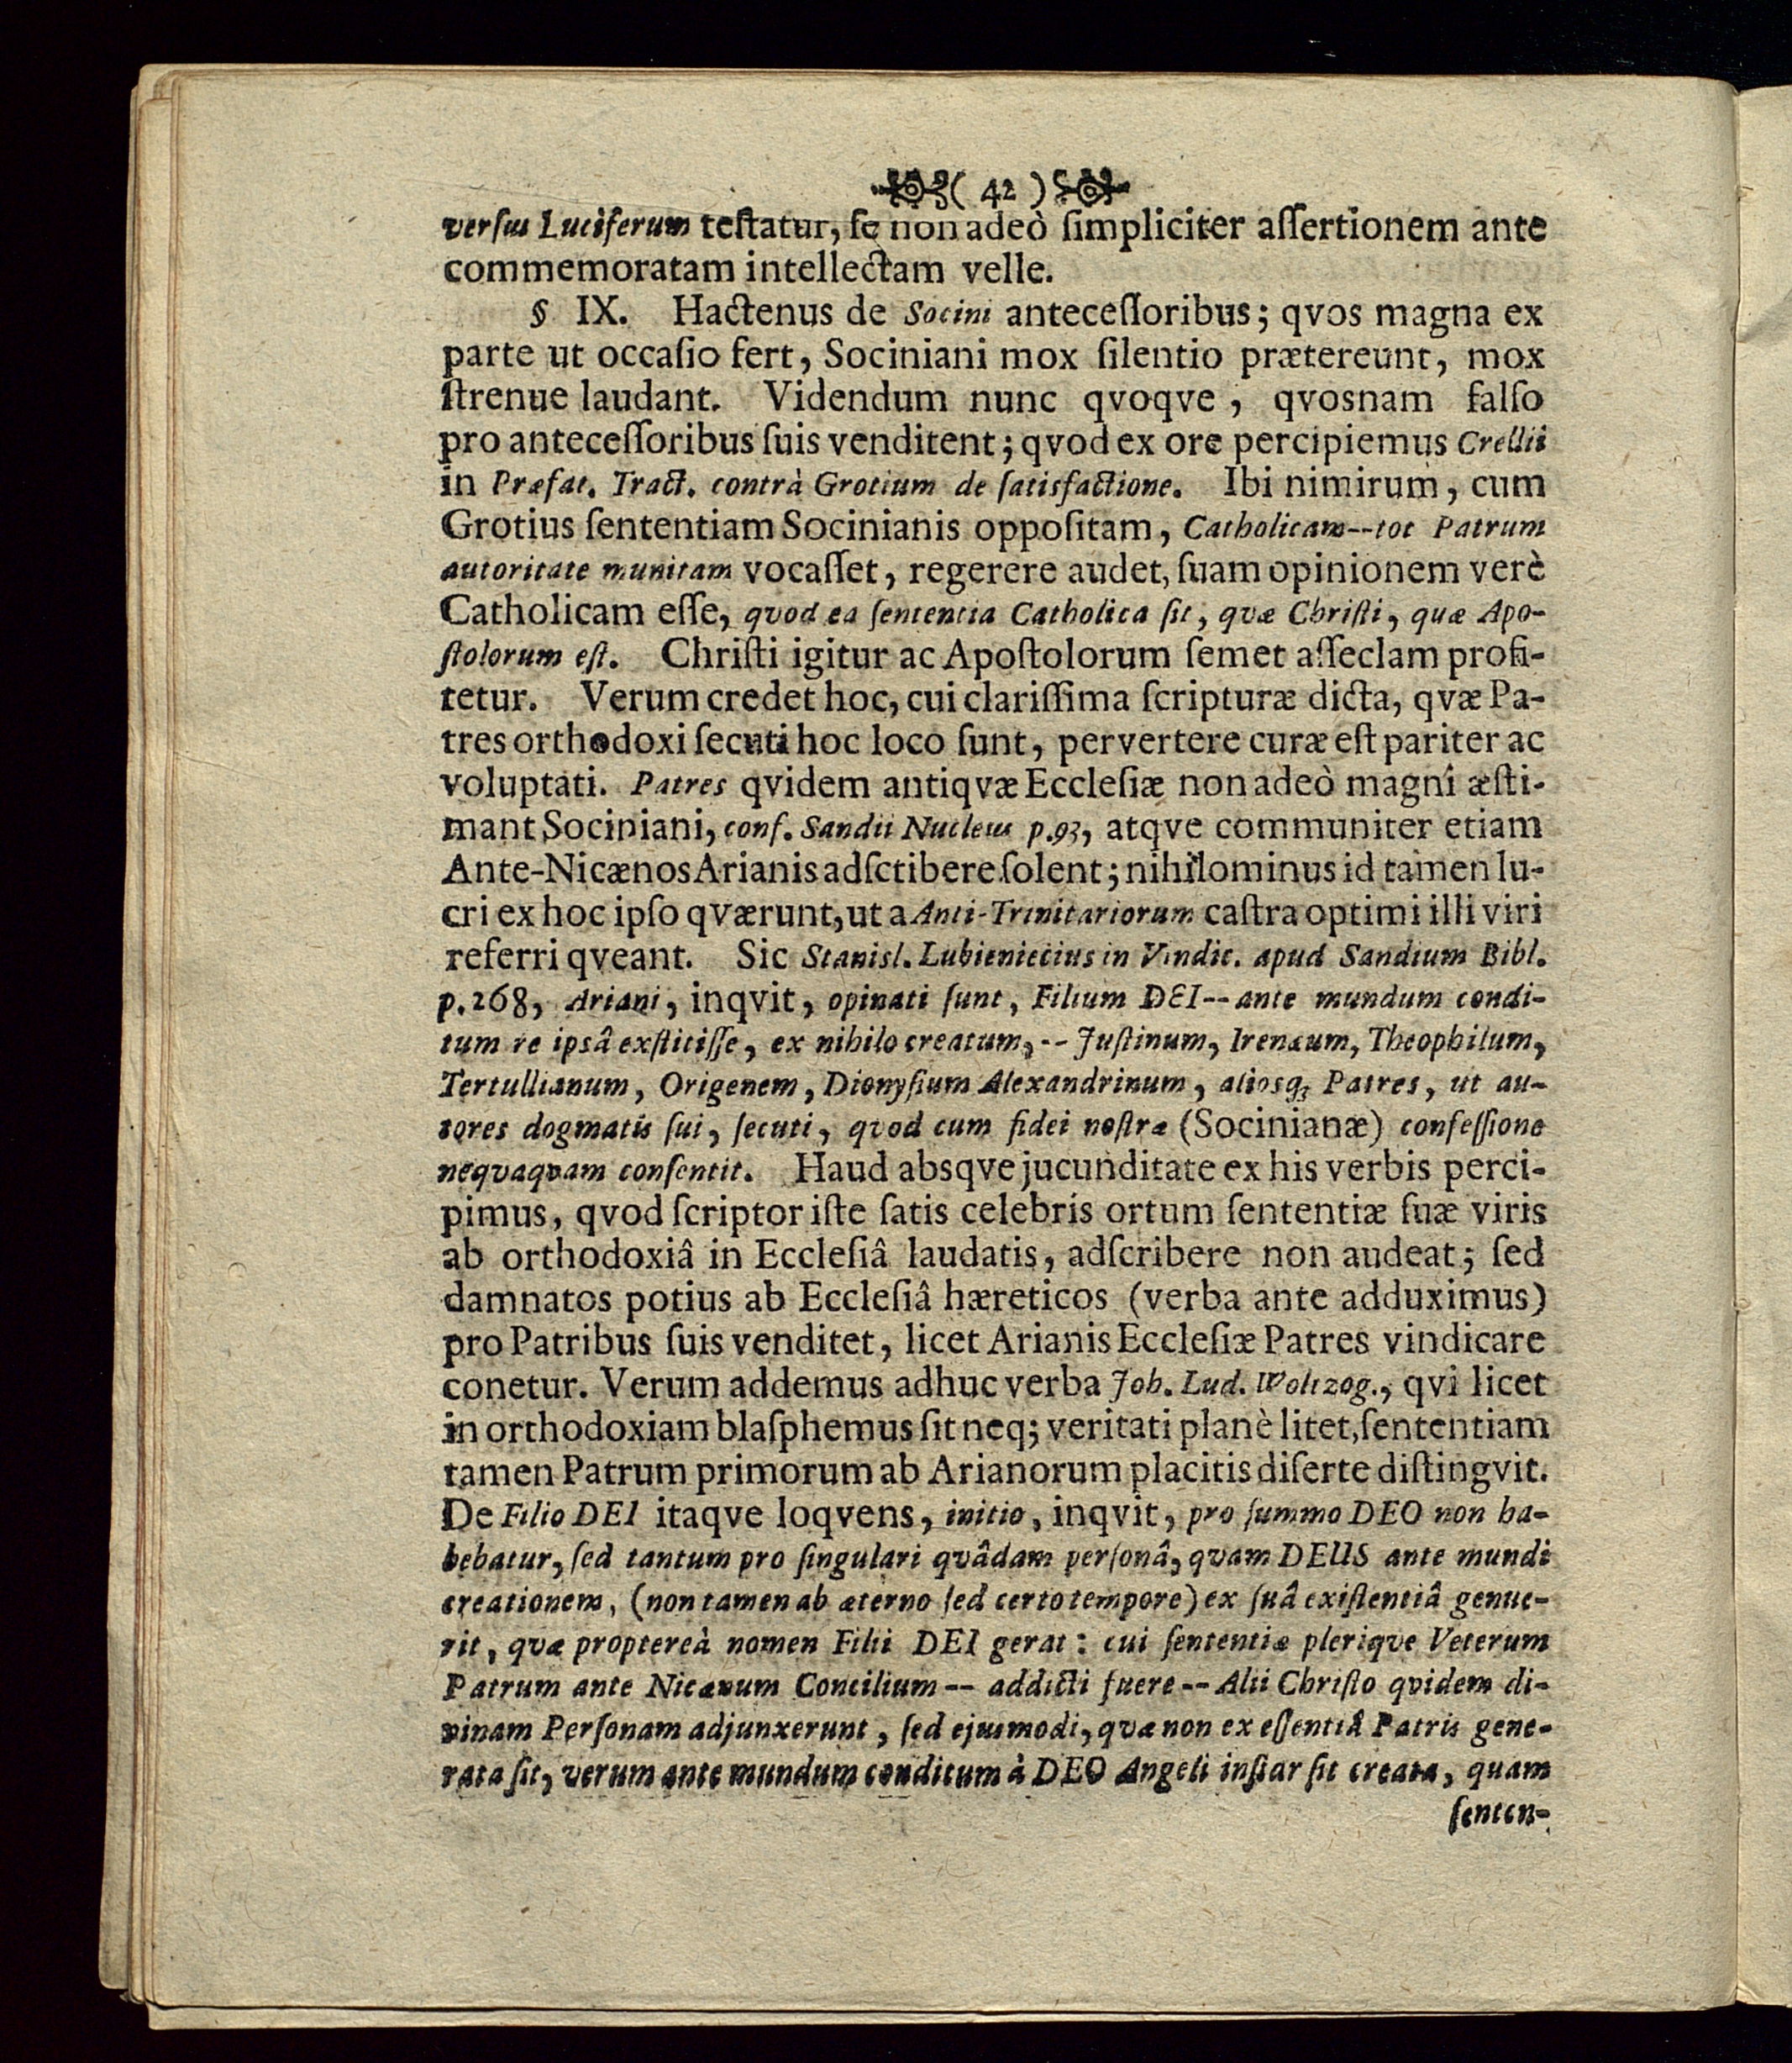 ( 42 )
verſus Luciferum teſtatur, ſe non adeò ſimpliciter aſſertionem ante
commemoratam intellectam velle.
§ IX. Hactenus de Socini anteceſſoribus; qvos magna ex
parte ut occaſio fert, Sociniani mox ſilentio prætereunt, mox
ſtrenue laudant. Videndum nunc qvoqve, qvosnam falſo
pro anteceſſoribus ſuis venditent; qvod ex ore percipiemus Crellii
in Præfat. Tract. contrà Grotium de ſatisfactione. Ibi nimirum, cum
Grotius ſententiam Socinianis oppoſitam, Catholicam--tot Patrum
autoritate munitam vocaſſet, regerere audet, ſuam opinionem verè
Catholicam eſſe, qvod ea ſententia Catholica ſit, qvæ Chriſti, quæ Apo-
ſtolorum eſt. Chriſti igitur ac Apoſtolorum ſemet aſſeclam profi-
tetur. Verum credet hoc, cui clariſſima ſcripturæ dicta, qvæ Pa-
tres orthodoxi ſecuti hoc loco ſunt, pervertere curæ eſt pariter ac
voluptati. Patres qvidem antiqvæ Eccleſiæ non adeò magni æſti-
mant Sociniani, conf. Sandii Nucleus p.93, atqve communiter etiam
Ante-Nicænos Arianis adſctibere ſolent; nihilominus id tamen lu-
cri ex hoc ipſo qværunt, ut a Anti-Trinitariorum caſtra optimi illi viri
referri qveant. Sic Stanisl. Lubieniecius in Vindic. apud Sandium Bibl.
p.268, Ariani, inqvit, opinati ſunt, Filium DEI--ante mundum condi-
tum re ipsâ exſtitiſſe, ex nihilo creatum,--Juſtinum, Irenæum, Theophilum,
Tertullianum, Origenem, Dionyſium Alexandrinum, aliosq; Patres, ut au-
tores dogmatis ſui, ſecuti, qvod cum fidei noſtræ (Socinianæ) confeſſione
neqvaqvam conſentit. Haud absqve jucunditate ex his verbis perci-
pimus, qvod ſcriptor iſte ſatis celebris ortum ſententiæ ſuæ viris
ab orthodoxiâ in Eccleſiâ laudatis, adſcribere non audeat; ſed
damnatos potius ab Eccleſiâ hæreticos (verba ante adduximus)
pro Patribus ſuis venditet, licet Arianis Eccleſiæ Patres vindicare
conetur. Verum addemus adhuc verba Joh. Lud. Woltzog., qvi licet
in orthodoxiam blaſphemus ſit neq; veritati planè litet, ſententiam
tamen Patrum primorum ab Arianorum placitis diſerte diſtingvit.
De Filio DEI itaqve loqvens, initio, inqvit, pro ſummo DEO non ha-
bebatur, ſed tantum pro ſingulari qvâdam perſonâ, qvam DEUS ante mundi
creationem, (non tamen ab æterno ſed certo tempore) ex ſuâ exiſtentiâ genue-
rit, qvæ proptereà nomen Filii DEI gerat: cui ſententiæ pleriqve Veterum
Patrum ante Nicænum Concilium--addicti fuere--Alii Chriſto qvidem di-
vinam Perſonam adjunxerunt, ſed ejusmodi, qvæ non ex eſſentiâ Patris gene-
rata ſit, verum ante mundum conditum à DEO Angeli inſtar ſit creata, quam
ſenten-